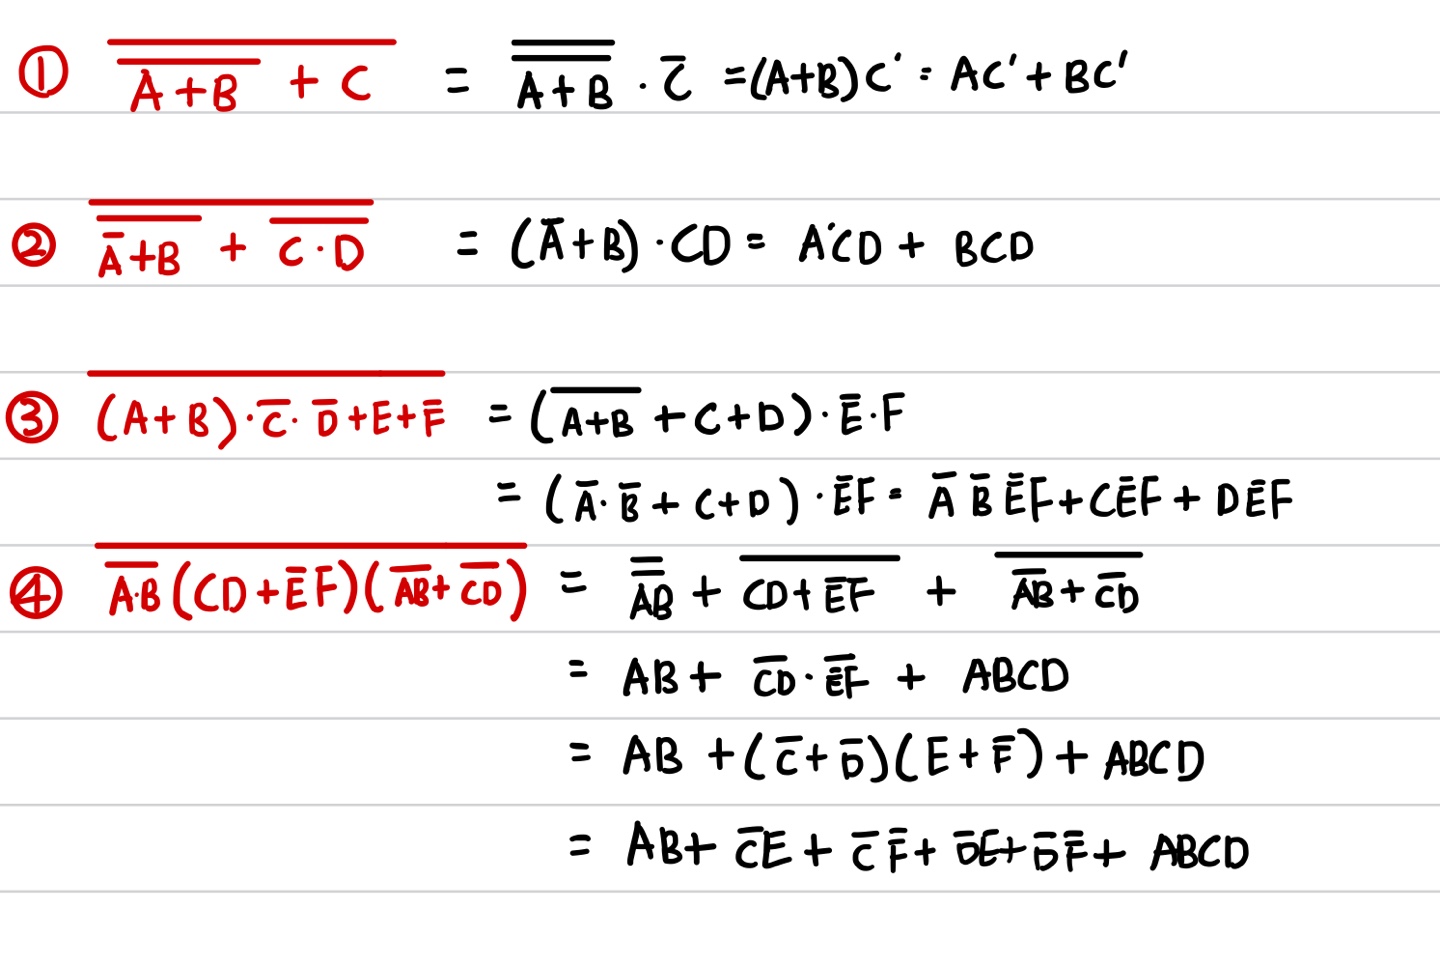 ① \overline{\overline{A+B} + C} = \overline{\overline{A+B}} · \overline{C} = (A+B)C' = AC' + BC'
② \overline{\overline{\overline{A}+B} + \overline{C·D}} = (\overline{A}+B)·CD = A'CD + BCD
③ \overline{(A+B)·\overline{C}·\overline{D}+E+\overline{F}} = (\overline{A+B} + C+D)·\overline{E}·F
= (\overline{A}·\overline{B} + C+D)·\overline{E}F = \overline{A} \overline{B} \overline{E}F + C\overline{E}F + D\overline{E}F
④ \overline{\overline{A·B}(CD+\overline{E}F)(\overline{AB}+\overline{CD})} = \overline{\overline{AB}} + \overline{CD+\overline{E}F} + \overline{\overline{AB}+\overline{CD}}
= AB + \overline{CD}·\overline{\overline{E}F} + ABCD
= AB + (\overline{C}+\overline{D})(E+\overline{F}) + ABCD
= AB + \overline{C}E + \overline{C}\overline{F} + \overline{D}E + \overline{D}\overline{F} + ABCD